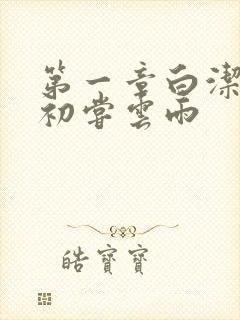 第一章白潔
初嘗雲雨
皓寶寶